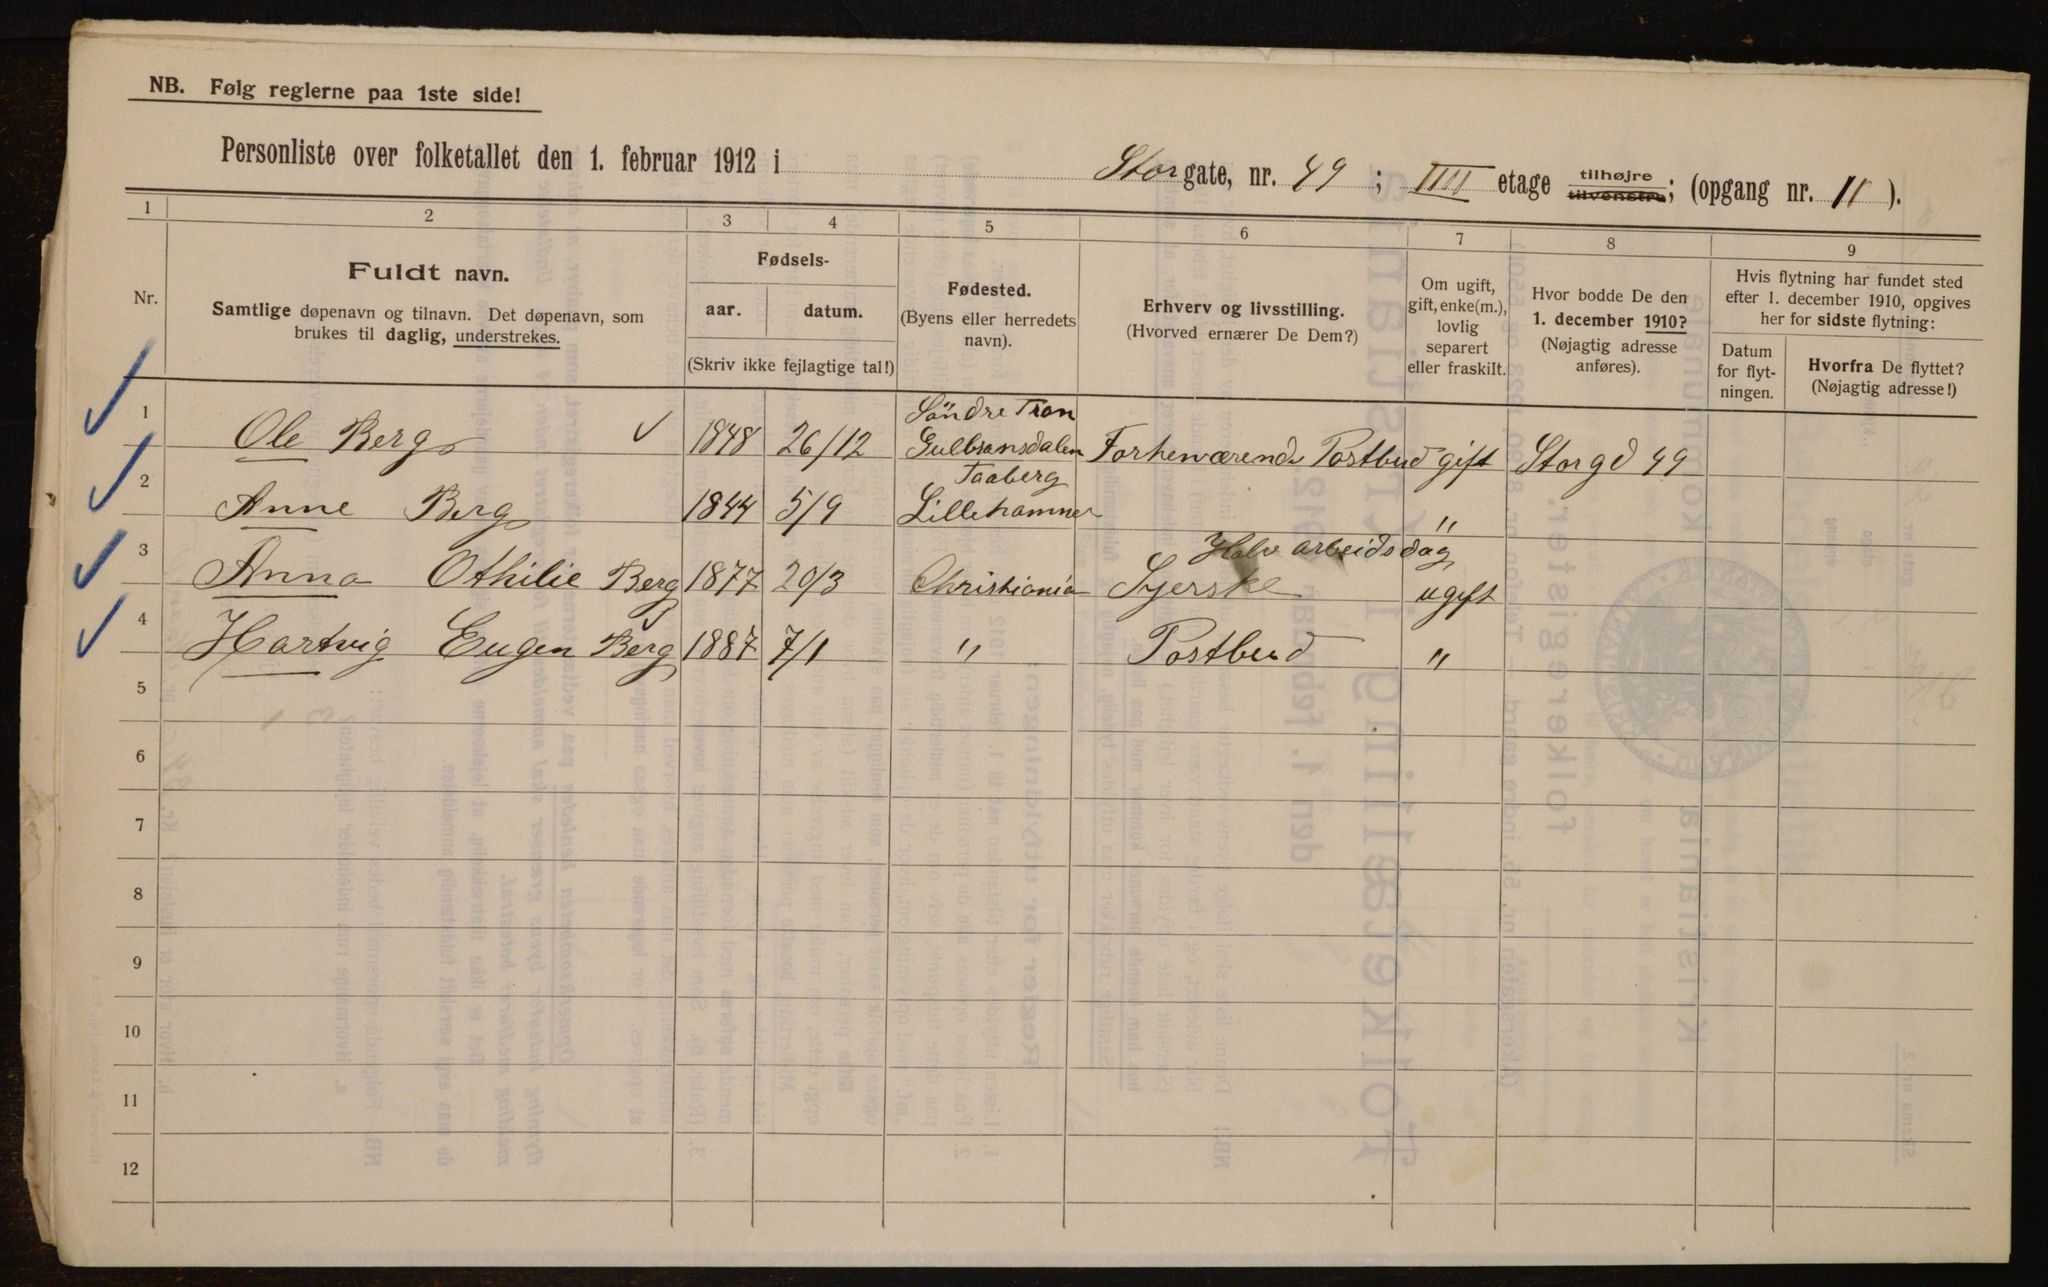 NB. Følg reglerne paa 1ste side!
Personliste over folketallet den 1. februar 1912 i Storgate, nr. 49; IIII etage tilhøjre tilvenstre; (opgang nr. II).
1 2 3 4 5 6 7 8 9
Nr.
Fuldt navn.
Samtlige døpenavn og tilnavn. Det døpenavn, som
brukes til daglig, understrekes.
Fødsels-
aar. datum.
(Skriv ikke fejlagtige tal!)
Fødested.
(Byens eller herredets
navn).
Erhverv og livsstilling.
(Hvorved ernærer De Dem?)
Om ugift,
gift, enke(m.),
lovlig
separert
eller fraskilt.
Hvor bodde De den
1. december 1910?
(Nøjagtig adresse
anføres).
Hvis flytning har fundet sted
efter 1. december 1910, opgives
her for sidste flytning:
Datum
for flyt-
ningen.
Hvorfra De flyttet?
(Nøjagtig adresse!)
1 Ole Berg 1848 26/12 Söndre Fron
Gulbransdalen Forhenværende Postbud gift Storgd 49
2 Anne Berg 1844 5/9 Faaberg
Lillehammer "
3 Anna Othilie Berg 1877 20/3 Christiania Halv arbeidsdag
Syerske ugift
4 Hartvig Eugen Berg 1887 7/1 " Postbud "
5
6
7
8
9
10
11
12